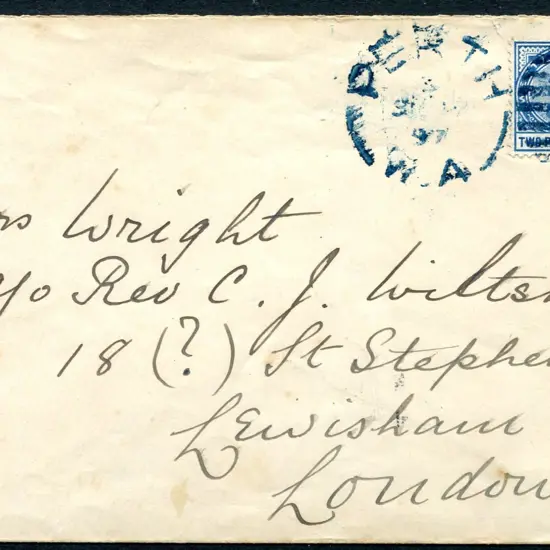 PERTH
97
W.A
TWO P
rs Wright
c/o Rev C. J. Wilts
18 (?) St Stephe
Lewisham
London